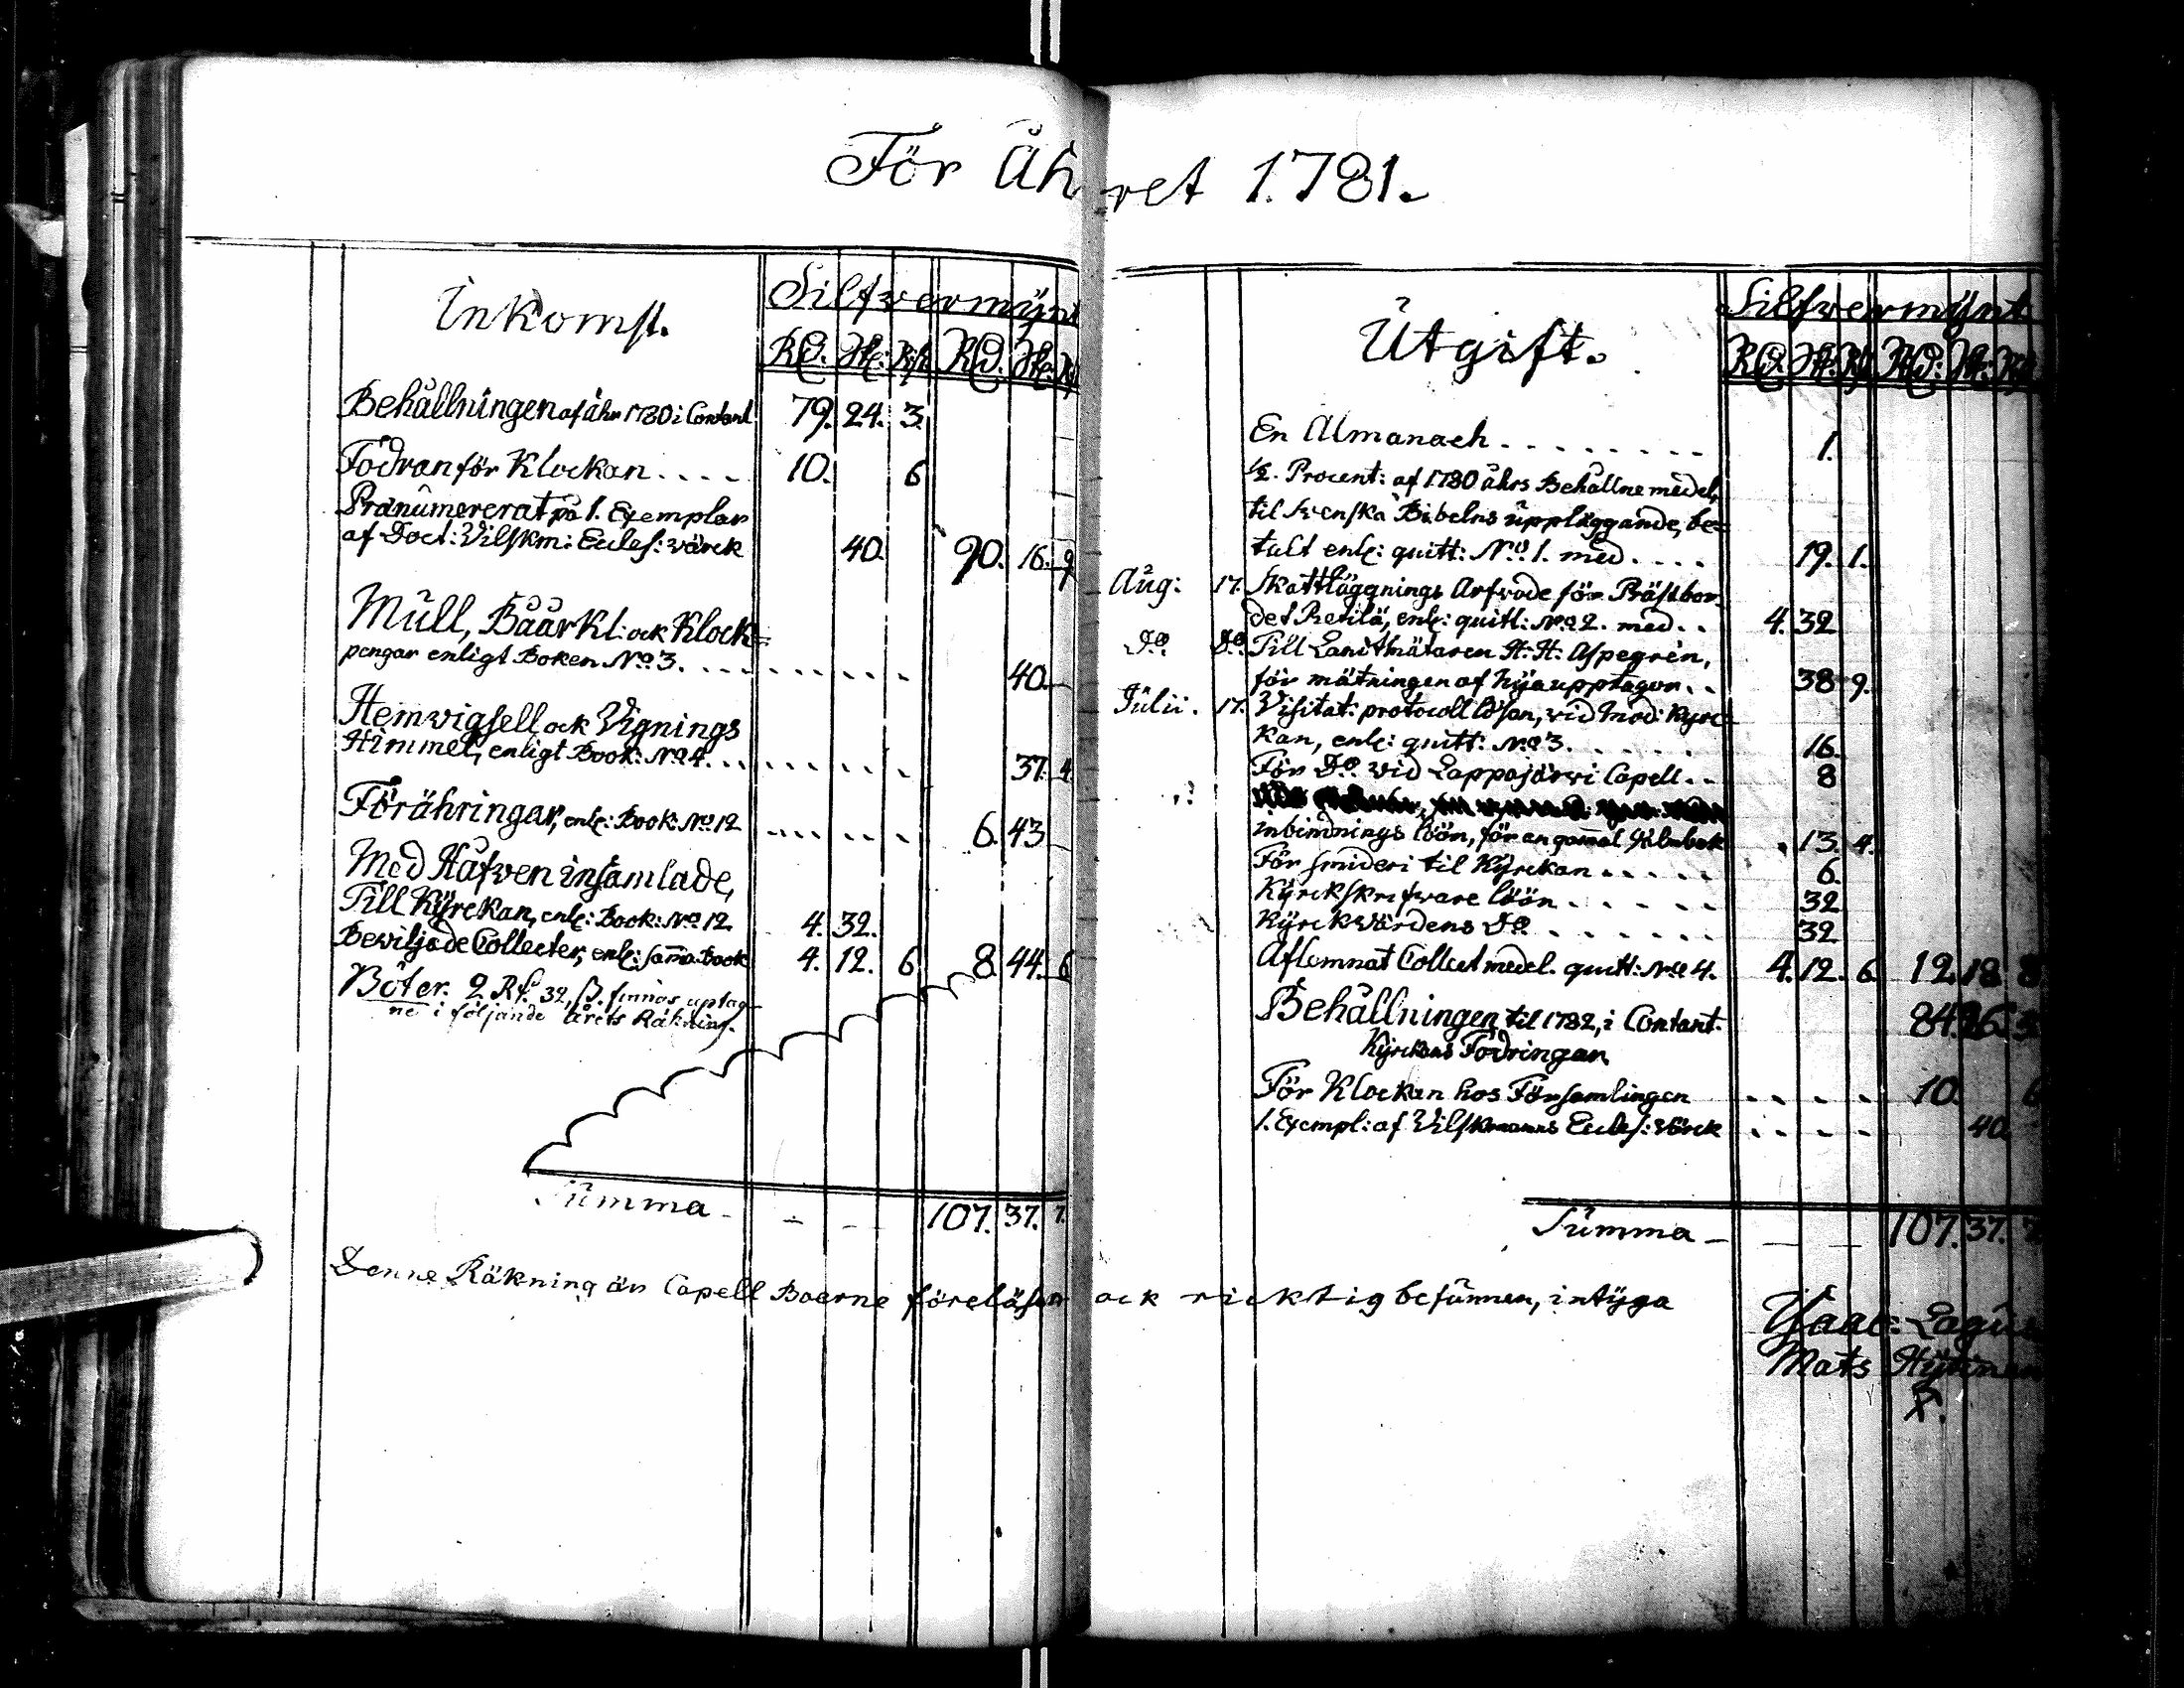 För Åhret 1781.
Inkomst.
Silfvermÿnt
Rd. sk: Rst. Rd. sk:
Behållningen af åhr 1780 i Contant 79. 24. 3.
Fodran för Klockan . . . . 10. 6
Pränumererat på 1. Exemplar
af Doct: Vilskm: Eccles: wärck 40. 90. 16. 9
Mull, Båår Kl: ock Klock=
pengar enligt Boken No 3. . . . . . . . . . 40.
Hemvigsell ock Vignings
Himmel, enligt Book: No 4. . . . . . . . . . 37. 4.
Förähringar, enl: Book: No 12 . . . . . . 6. 43
Med Håfven insamlade,
Till Kÿrckan, enl: Book: No 12. 4. 32.
Beviljade Collecter, enl: sama Book 4. 12. 6 8. 44. 6
Böter. 2 Rd. 32, ß. finnas uptag-
ne i följande årets Räkning.
Summa - - - 107. 37. 7.
Denne Räkning är Capell Boerne föreläsen ock ricktig befunnen, intÿga
Utgift.
Silfvermÿnt
Rd. sk: Rd: sk:
En Almanach . . . . . . . . 1.
½. Procent: af 1780 åhrs Behållne medel,
til Svenska Bibelns uppläggande, be=
talt enl: quitt: No 1. med . . . . 19. 1.
Aug: 17. Skattläggnings Arfvode för Prästbor-
det Retilä, enl: quitt: No 2. med . . 4. 32
Do. Do. Till Landtmätaren H: H: Aspegrén,
för mätningen af nÿa upptagor. . 38 9.
Julii. 17. Visitat: protocoll lösen, vid Mod: Kyrc=
kan, enl: quitt: No 3. . . . . . 16.
För Do. vid Lappajärvi Capell . . 8
inbindnings löön, för en gamal 13. 4.
För smideri til Kÿrckan . . . . . 6.
Kÿrckskrifware löön . . . . . 32
Kÿrckvärdens Do . . . . . . . 32
Aflemnat Collect medel. quitt: No 4. 4. 12. 6 12. 18. 8.
Behållningen til 1782, i Contant. 84. 26.
Kÿrckans Fodringar
För Klockan hos Församlingen . . . . 10. 6
1. Exempl: af Vilskmanns Eccles: Wärck . . . . 40.
Summa - - - 107. 37. 7
Isaac: Lagus
Mats